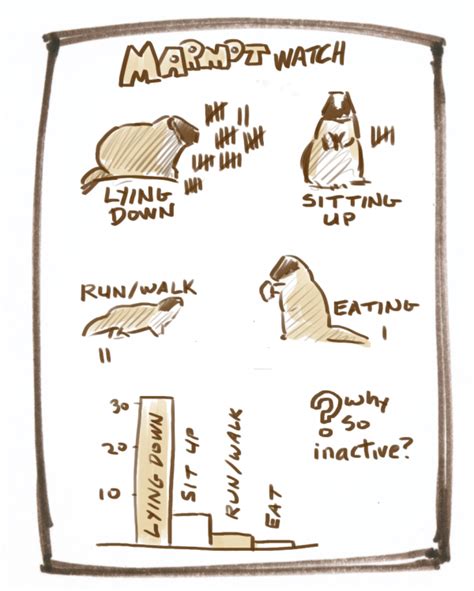 MARMOT WATCH
LYING
DOWN
SITTING
UP
RUN/WALK
EATING
30
20
10
LYING DOWN
SIT UP
RUN/WALK
EAT
? why
so
inactive?